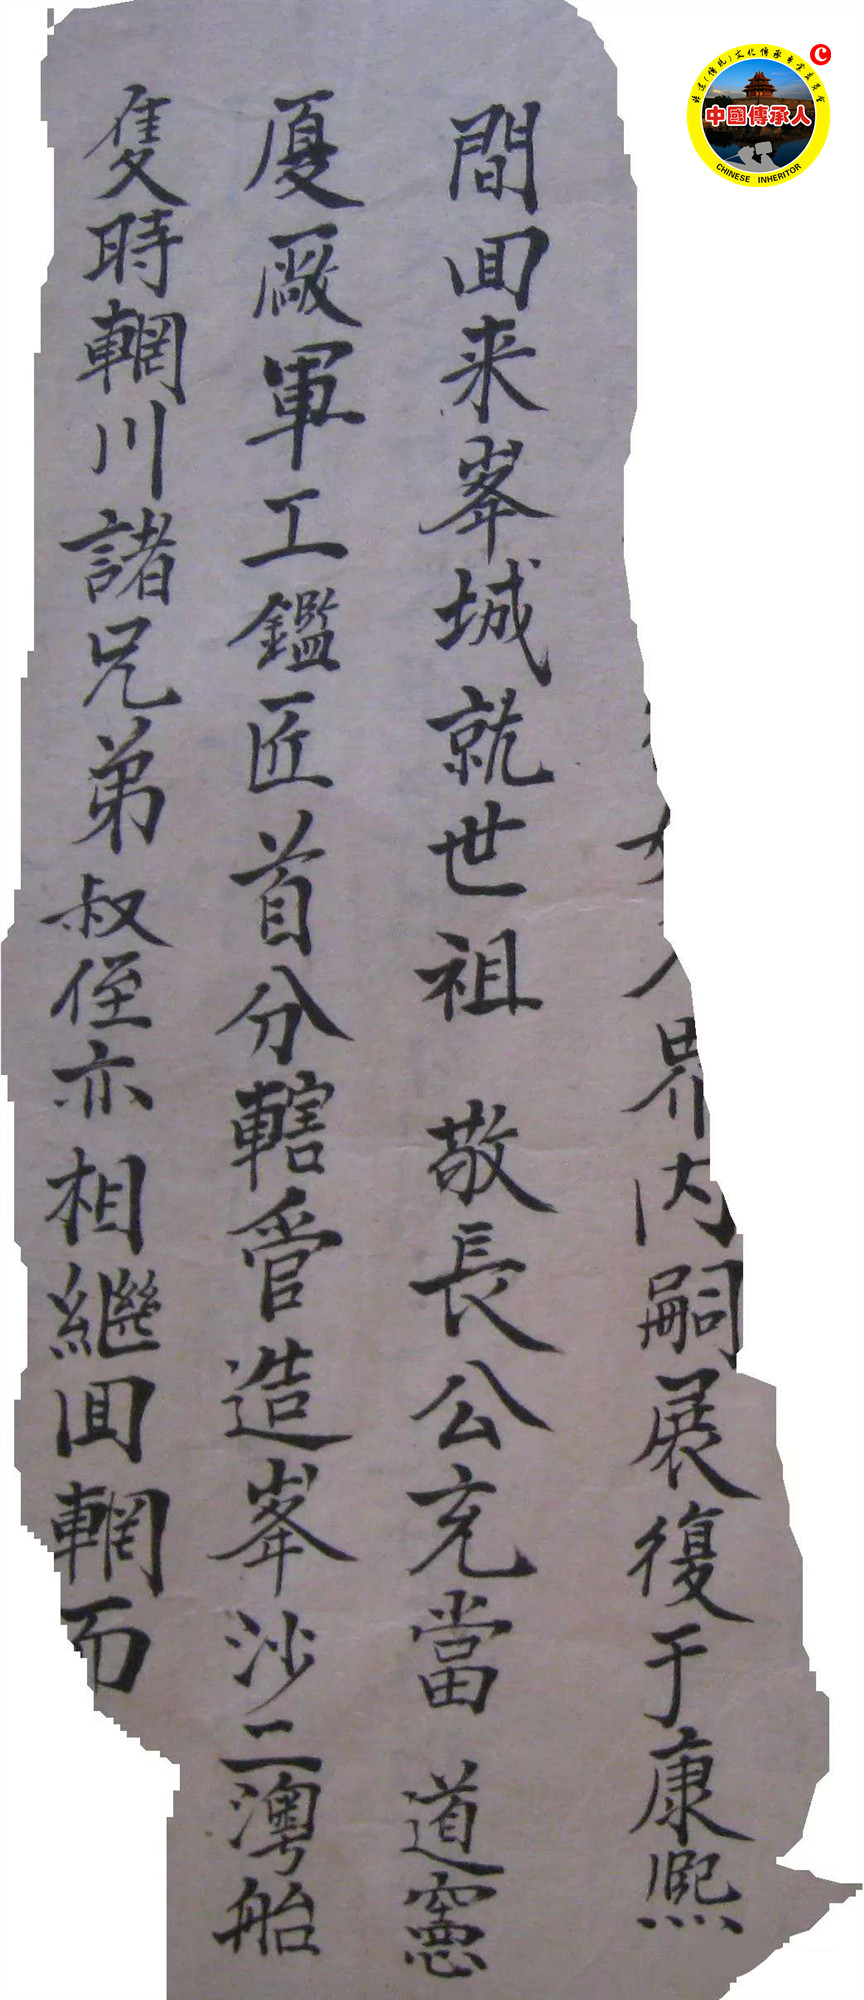 界内嗣展復于康熙
間囬来峯城就世祖 敬長公充當 道憲
厦厰軍工鑑匠首分轄管造峯沙二澚船
隻時輞川諸兄弟叔侄亦相繼囬輞而
中國傳承人
CHINESE INHERITOR